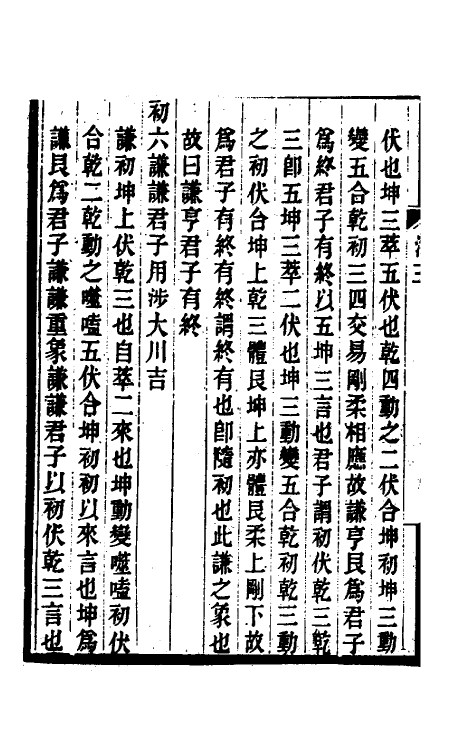 伏也坤三萃五伏也乾四動之二伏合坤初坤三動
變五合乾初三四交易剛柔相應故謙亨艮爲君子
爲終君子有終以五坤三言也君子謂初伏乾三乾
三卽五坤三萃二伏也坤三動變五合乾初乾三動
之初伏合坤上乾三體艮坤上亦體艮柔上剛下故
爲君子有終有終謂終有也卽隨初也此謙之象也
故曰謙亨君子有終
初六謙謙君子用涉大川吉
謙初坤上伏乾三也自萃二來也坤動變噬嗑初伏
合乾二乾動之噬嗑五伏合坤初初以來言也坤爲
謙艮爲君子謙謙重象謙謙君子以初伏乾三言也